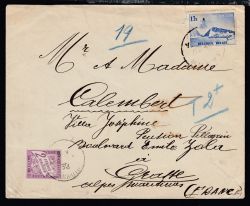 19
Mr & Madame
Calembert
Villa Joséphine
Pension Pélegrin
Boulevard Emile Zola
à
Grasse
Alpes Maritimes
(FRANCE)